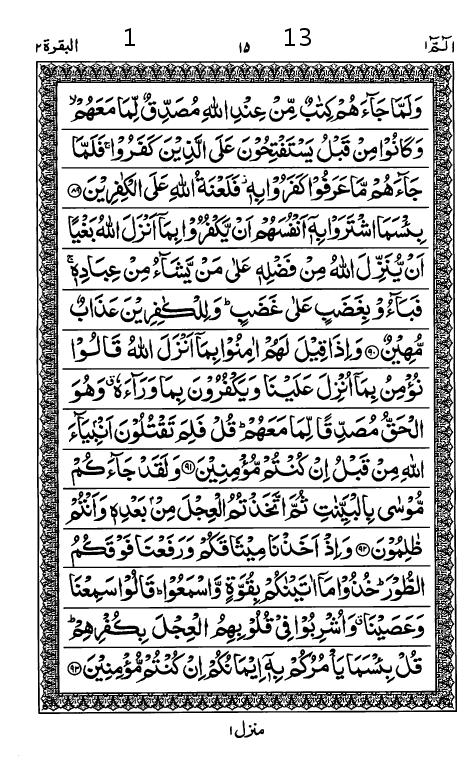 البقرة ٢ 1 ١٥ 13 الٓمّٓ ١
وَلَمَّا جَآءَهُمْ كِتٰبٌ مِّنْ عِنْدِ اللّٰهِ مُصَدِّقٌ لِّمَا مَعَهُمْ ۙ
وَكَانُوْا مِنْ قَبْلُ يَسْتَفْتِحُوْنَ عَلَى الَّذِيْنَ كَفَرُوْا ۚ فَلَمَّا
جَآءَهُمْ مَّا عَرَفُوْا كَفَرُوْا بِهٖ ۫ فَلَعْنَةُ اللّٰهِ عَلَى الْكٰفِرِيْنَ ۝٨٩
بِئْسَمَا اشْتَرَوْا بِهٖٓ اَنْفُسَهُمْ اَنْ يَّكْفُرُوْا بِمَآ اَنْزَلَ اللّٰهُ بَغْيًا
اَنْ يُّنَزِّلَ اللّٰهُ مِنْ فَضْلِهٖ عَلٰى مَنْ يَّشَآءُ مِنْ عِبَادِهٖ ۚ
فَبَآءُوْ بِغَضَبٍ عَلٰى غَضَبٍ ؕ وَلِلْكٰفِرِيْنَ عَذَابٌ
مُّهِيْنٌ ۝٩٠ وَاِذَا قِيْلَ لَهُمْ اٰمِنُوْا بِمَآ اَنْزَلَ اللّٰهُ قَالُوْا
نُؤْمِنُ بِمَآ اُنْزِلَ عَلَيْنَا وَيَكْفُرُوْنَ بِمَا وَرَآءَهٗ ۗ وَهُوَ
الْحَقُّ مُصَدِّقًا لِّمَا مَعَهُمْ ؕ قُلْ فَلِمَ تَقْتُلُوْنَ اَنْۢبِيَآءَ
اللّٰهِ مِنْ قَبْلُ اِنْ كُنْتُمْ مُّؤْمِنِيْنَ ۝٩١ وَلَقَدْ جَآءَكُمْ
مُّوْسٰى بِالْبَيِّنٰتِ ثُمَّ اتَّخَذْتُمُ الْعِجْلَ مِنْۢ بَعْدِهٖ وَاَنْتُمْ
ظٰلِمُوْنَ ۝٩٢ وَاِذْ اَخَذْنَا مِيْثَاقَكُمْ وَرَفَعْنَا فَوْقَكُمُ
الطُّوْرَ ؕ خُذُوْا مَآ اٰتَيْنٰكُمْ بِقُوَّةٍ وَّاسْمَعُوْا ؕ قَالُوْا سَمِعْنَا
وَعَصَيْنَا ۗ وَاُشْرِبُوْا فِيْ قُلُوْبِهِمُ الْعِجْلَ بِكُفْرِهِمْ ؕ
قُلْ بِئْسَمَا يَاْمُرُكُمْ بِهٖٓ اِيْمَانُكُمْ اِنْ كُنْتُمْ مُّؤْمِنِيْنَ ۝٩٣
منزل ١